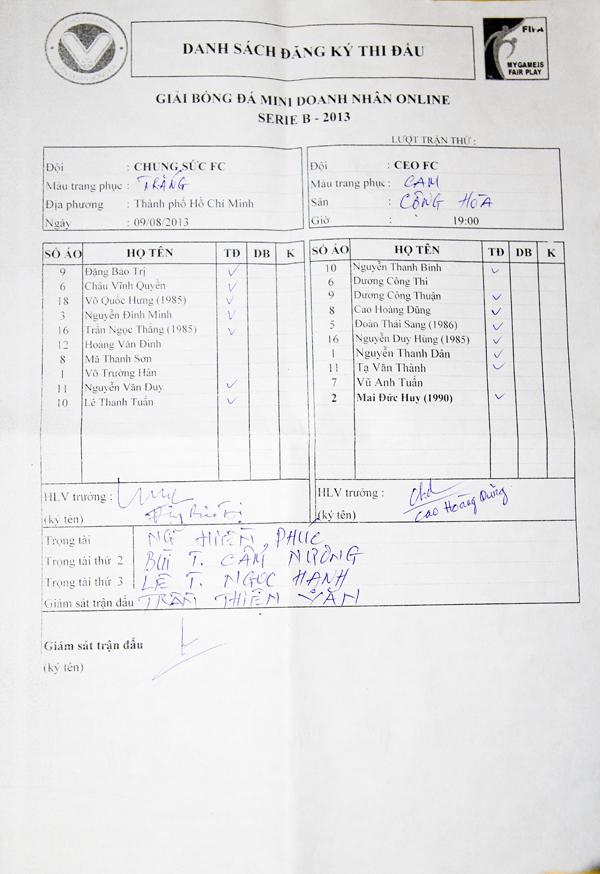 DANH SÁCH ĐĂNG KÝ THI ĐẤU
FIFA
MY GAME IS
FAIR PLAY
GIẢI BÓNG ĐÁ MINI DOANH NHÂN ONLINE
SERIE B - 2013
LƯỢT TRẬN THỨ :
Đội : CHUNG SỨC FC
Màu trang phục : TRẮNG
Địa phương : Thành phố Hồ Chí Minh
Ngày : 09/08/2013
Đội : CEO FC
Màu trang phục : CAM
Sân : CỘNG HÒA
Giờ : 19:00
SỐ ÁO HỌ TÊN TĐ DB K
9 Đặng Bảo Trị ✓
6 Châu Vĩnh Quyền ✓
18 Võ Quốc Hưng (1985) ✓
3 Nguyễn Đình Minh ✓
16 Trần Ngọc Thăng (1985) ✓
12 Hoàng Văn Đinh
8 Mã Thanh Sơn
1 Võ Trường Hân
11 Nguyễn Văn Duy ✓
10 Lê Thanh Tuấn ✓
SỐ ÁO HỌ TÊN TĐ DB K
10 Nguyễn Thanh Bình ✓
6 Dương Công Thi
9 Dương Công Thuận ✓
8 Cao Hoàng Dũng ✓
5 Đoàn Thái Sang (1986) ✓
16 Nguyễn Duy Hùng (1985) ✓
1 Nguyễn Thanh Dân ✓
11 Tạ Văn Thành ✓
7 Vũ Anh Tuấn
2 Mai Đức Huy (1990) ✓
HLV trưởng :
(ký tên)
HLV trưởng :
(ký tên) Cao Hoàng Dũng
Trọng tài NG HIỀN PHÚC
Trọng tài thứ 2 BÙI T. CẨM NƯƠNG
Trọng tài thứ 3 LÊ T. NGỌC HẠNH
Giám sát trận đấu TRẦN THIÊN VĂN
Giám sát trận đấu
(ký tên)